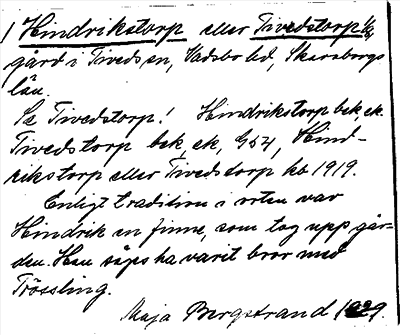 1 Hindrikstorp eller Tivedstorp 1/4
gård i Tiveds sn, Vadsbo hd, Skaraborgs
län.
Se Tivedstorp! Hindrikstorp bek. ek.
Tivedstorp bek. ek, G54, Hind-
rikstorp eller Tivedstorp kb 1919.
Enligt tradition i orten var
Hindrik en finne, som tog upp går-
den. Han säges ha varit bror med
Trössling.
Maja Bergstrand 1929.